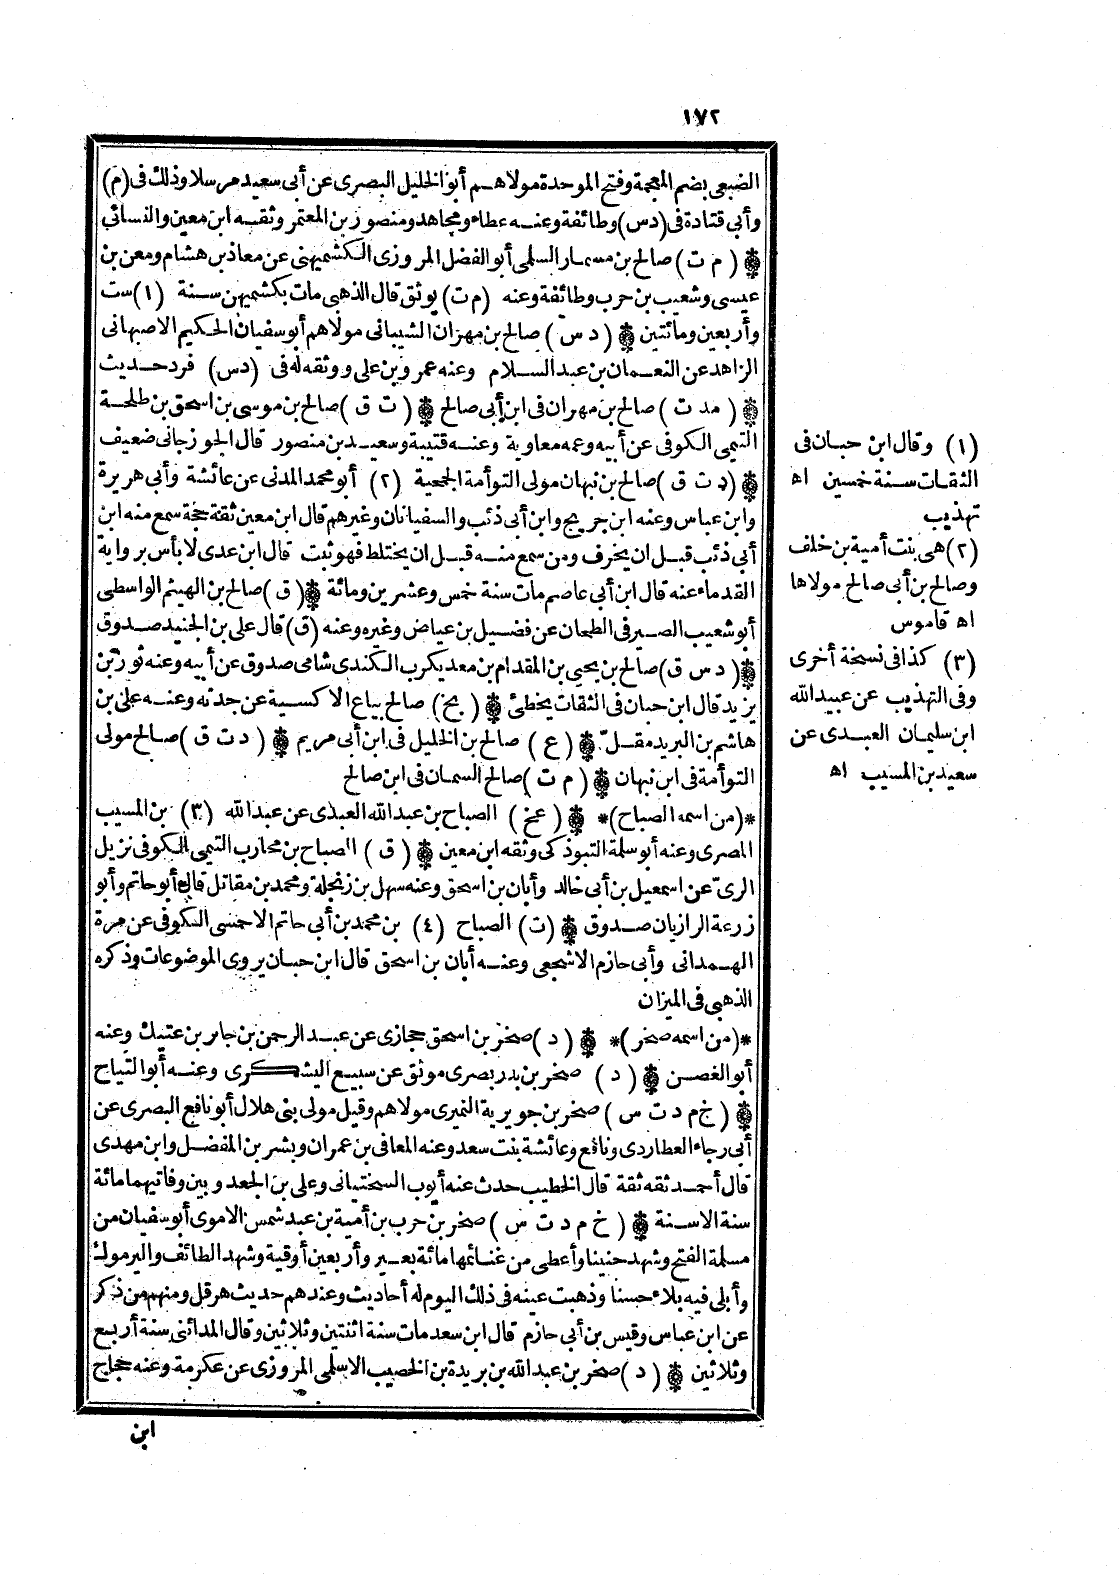 ١٧٢
الضبعي بضم المعجمة وفتح الموحدة مولاهم أبو الخليل البصرى عن أبى سعيد مرسلا وذلك فى (م)
وأبى قتادة فى (دس) وطائفة وعنه عطاء ومجاهد ومنصور بن المعتمر وثقه ابن معين والنسائى
❁ (م ت) صالح بن مسمار السلمى أبو الفضل المروزى الكشميهنى عن معاذ بن هشام ومعن بن
عيسى وشعيب بن حرب وطائفة وعنه (م ت) يوثق قال الذهبى مات بكشميهن سنة (١) ست
وأربعين ومائتين ❁ (د س) صالح بن مهران الشيبانى مولاهم أبو سفيان الحكيم الاصبهانى
الزاهد عن النعمان بن عبد السلام وعنه عمرو بن على ووثقه له فى (دس) فرد حديث
❁ (مد ت) صالح بن مهران فى ابن أبى صالح ❁ (ت ق) صالح بن موسى بن اسحق بن طلحة
التيمى الكوفى عن أبيه وعمه معاوية وعنه قتيبة وسعيد بن منصور قال الجوزجانى ضعيف
❁ (د ت ق) صالح بن نبهان مولى التوأمة الجمحية (٢) أبو محمد المدنى عن عائشة وأبى هريرة
وابن عباس وعنه ابن جريج وابن أبى ذئب والسفيانان وغيرهم قال ابن معين ثقة حجة سمع منه ابن
أبى ذئب قبل ان يخرف ومن سمع منه قبل ان يختلط فهو ثبت قال ابن عدى لا بأس برواية
القدماء عنه قال ابن أبى عاصم مات سنة خمس وعشرين ومائة ❁ (ق) صالح بن الهيثم الواسطى
أبو شعيب الصيرفى الطحان عن فضيل بن عياض وغيره وعنه (ق) قال على بن الجنيد صدوق
❁ (د س ق) صالح بن يحيى بن المقدام بن معد يكرب الكندى شامى صدوق عن أبيه وعنه ثور بن
يزيد قال ابن حبان فى الثقات يخطئ ❁ (بخ) صالح بياع الاكسية عن جدته وعنه على بن
هاشم بن البريد مقل ❁ (ع) صالح بن الخليل فى ابن أبى مريم ❁ (د ت ق) صالح مولى
التوأمة فى ابن نبهان ❁ (م ت) صالح السمان فى ابن صالح
*(من اسمه الصباح)* ❁ (عخ) الصباح بن عبد الله العبدى عن عبد الله (٣) بن المسيب
المصرى وعنه أبو سلمة التبوذكى وثقه ابن معين ❁ (ق) الصباح بن محارب التيمى الكوفى نزيل
الرىّ عن اسمعيل بن أبى خالد وأبان بن اسحق وعنه سهل بن زنجلة ومحمد بن مقاتل قال أبو حاتم وأبو
زرعة الرازيان صدوق ❁ (ت) الصباح (٤) بن محمد بن أبى حاتم الاحمسى الكوفى عن مرة
الهمدانى وأبى حازم الاشجعى وعنه أبان بن اسحق قال ابن حبان يروى الموضوعات وذكره
الذهبى فى الميزان
*(من اسمه صخر)* ❁ (د) صخر بن اسحق حجازى عن عبد الرحمن بن جابر بن عتيك وعنه
أبو الغصن ❁ (د) صخر بن بدر بصرى موثق عن سبيع اليشكرى وعنه أبو التياح
❁ (خ م د ت س) صخر بن جويرية النميرى مولاهم وقيل مولى بنى هلال أبو نافع البصرى عن
أبى رجاء العطاردى ونافع وعائشة بنت سعد وعنه المعافى بن عمران وبشر بن المفضل وابن مهدى
قال أحمد ثقه ثقة قال الخطيب حدث عنه أيوب السختيانى وعلى بن الجعد وبين وفاتيهما مائة
سنة الاسنة ❁ (خ م د ت س) صخر بن حرب بن أمية بن عبد شمس الاموى أبو سفيان من
مسلمة الفتح وشهد حنينا وأعطى من غنائمها مائة بعير وأربعين أوقية وشهد الطائف واليرموك
وأبلى فيه بلاء حسنا وذهبت عينه فى ذلك اليوم له أحاديث وعندهم حديث هرقل ومنهم من ذكر
عن ابن عباس وقيس بن أبى حازم قال ابن سعد مات سنة اثنتين وثلاثين وقال المدائنى سنة أربع
وثلاثين ❁ (د) صخر بن عبد الله بن بريدة بن الخصيب الاسلمى المروزى عن عكرمة وعنه حجاج
ابن
(١) وقال ابن حبان فى
الثقات سنة خمسين اه
تهذيب
(٢) هى بنت أمية بن خلف
وصالح بن أبى صالح مولاها
اه قاموس
(٣) كذا فى نسخة أخرى
وفى التهذيب عن عبيد الله
ابن سليمان العبدى عن
سعيد بن المسيب اه